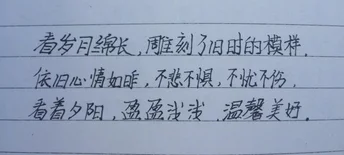 看岁月绵长,雕刻了旧时的模样.
依旧心情如昨,不悲不惧,不忧不伤,
看着夕阳,盈盈浅浅,温馨美好.